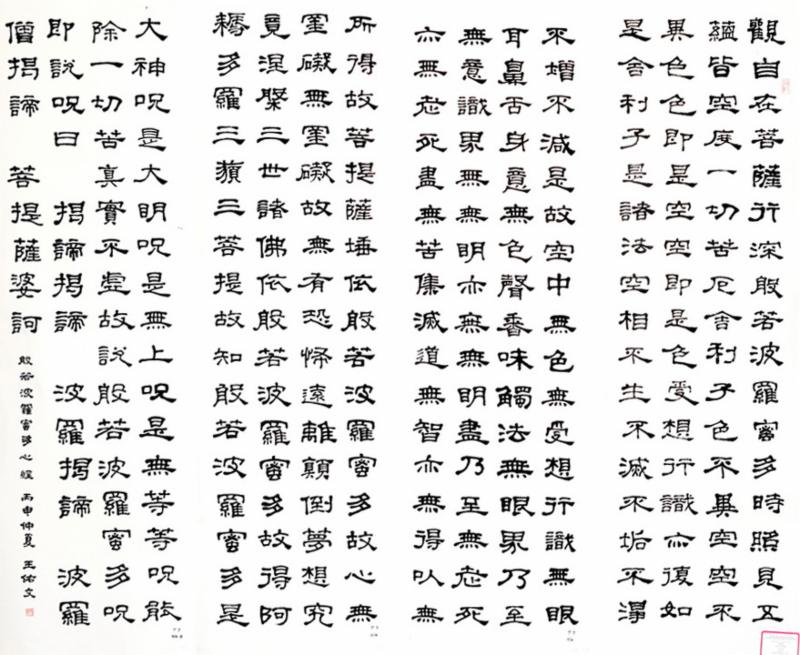 觀自在菩薩行深般若波羅蜜多時照見五
蘊皆空度一切苦厄舍利子色不異空空不
異色色即是空空即是色受想行識亦復如
是舍利子是諸法空相不生不滅不垢不淨
不增不減是故空中無色無受想行識無眼
耳鼻舌身意無色聲香味觸法無眼界乃至
無意識界無無明亦無無明盡乃至無老死
亦無老死盡無苦集滅道無智亦無得以無
所得故菩提薩埵依般若波羅蜜多故心無
罣礙無罣礙故無有恐怖遠離顛倒夢想究
竟涅槃三世諸佛依般若波羅蜜多故得阿
耨多羅三藐三菩提故知般若波羅蜜多是
大神呪是大明呪是無上呪是無等等呪能
除一切苦真實不虛故說般若波羅蜜多呪
即說呪曰 揭諦揭諦 波羅揭諦 波羅
僧揭諦 菩提薩婆訶
般若波羅蜜多心經 丙申仲夏 王佑文